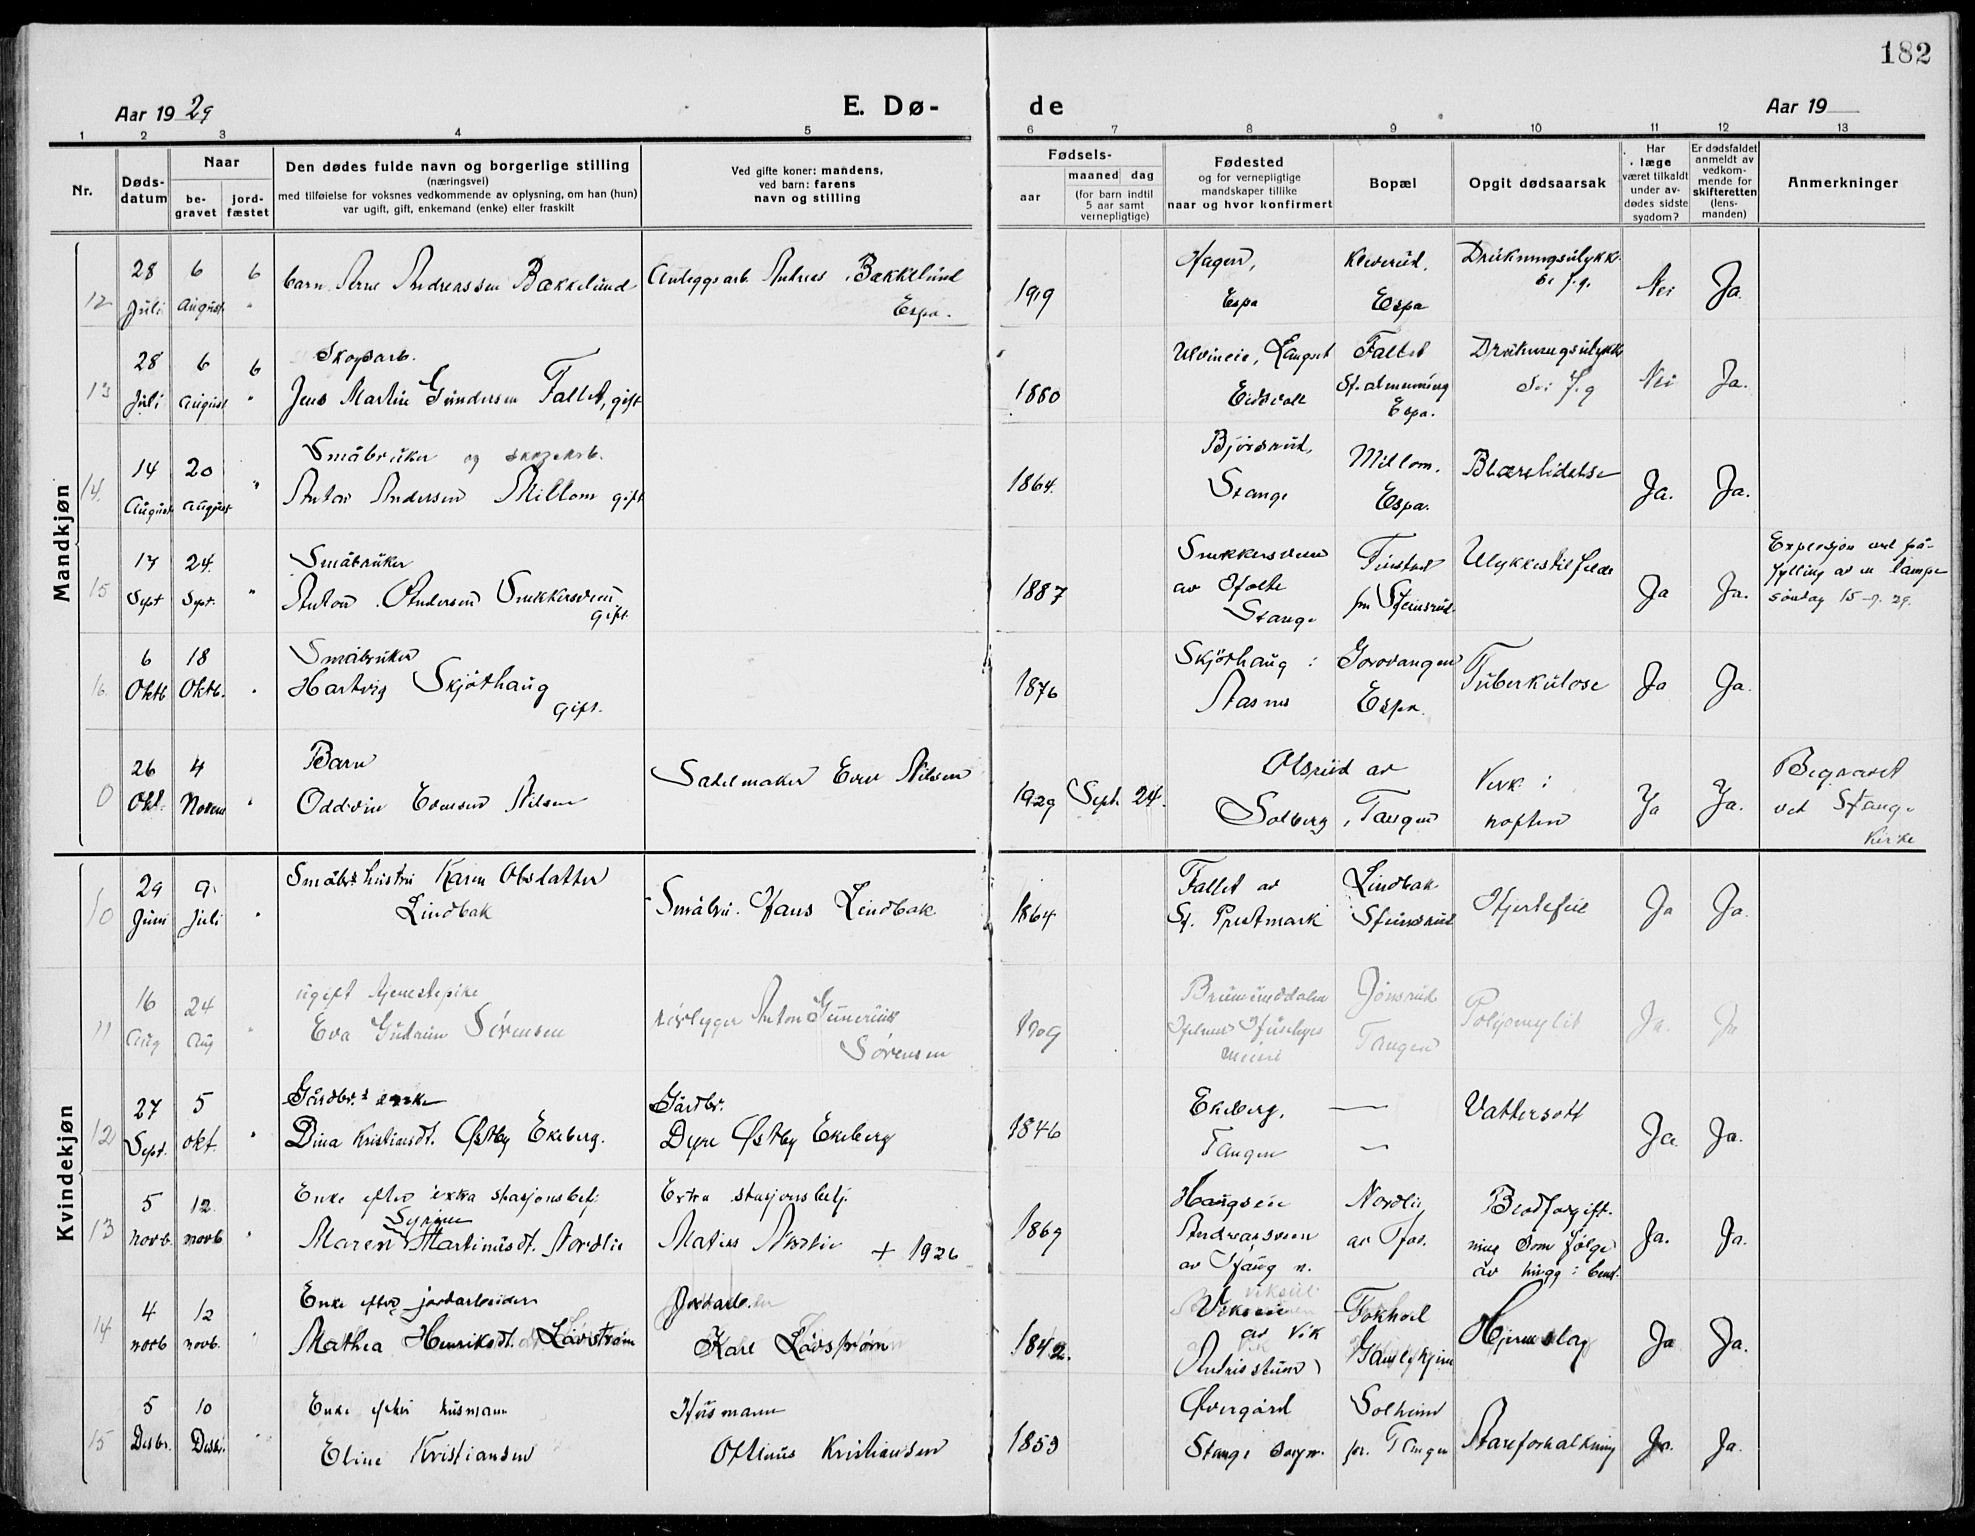 182
Aar 1929
E. Dø-
de
Aar 19
1 2 3 4 5 6 7 8 9 10 11 12 13
Nr.
Døds-
datum
Naar
be-
gravet
jord-
fæstet
Den dødes fulde navn og borgerlige stilling
(næringsvei)
med tilføielse for voksnes vedkommende av oplysning, om han (hun)
var ugift, gift, enkemand (enke) eller fraskilt
Ved gifte koner: mandens,
ved barn: farens
navn og stilling
Fødsels-
aar
maaned dag
(for barn indtil
5 aar samt
vernepligtige)
Fødested
og for vernepligtige
mandskaper tillike
naar og hvor konfirmert
Bopæl
Opgit dødsaarsak
Har
læge
været tilkaldt
under av-
dødes sidste
sygdom?
Er dødsfaldet
anmeldt av
vedkom-
mende for
skifteretten
(lens-
manden)
Anmerkninger
Mandkjøn
12
28 6 6
Juli August "
barn Arne Andreassen Bakkelund
Anleggsarb. Andreas Bakkelund
Espa.
1919
Hagen,
Espa
Kleverud,
Espa
Drukningsulykke
Nei Ja.
13
28 6 6
Juli August "
Skogsarb.
Jens Martin Gundersen Fallet, gift
1880
Ulvineie, Langset
Eidsvoll
Fallet
St. almenning
Espa.
Drukningsulykke
Nei Ja.
14.
14 20
August August "
Småbruker og skogsarb.
Anton Andersen Millom gift
1864.
Bjørsrud,
Stange
Millom,
Espa.
Blærelidelse
Ja. Ja.
15
17 24.
Sept Sept. "
Småbruker
Anton Andersen Snekkersveen
gift.
1887
Snekkersveen
av Holte
Stange
Finstad
pr Steinsrud
Ulykkestilfelde
Ja Ja.
Explosjon ved på-
fylling av en lampe
søndag 15-9.29.
16.
6 18
Oktb. Oktb. "
Småbruker
Hartvig Skjøthaug
gift.
1876
Skjøthaug i
Åsnes
Gorovangen
Espa.
Tuberkulose
Ja Ja.
0
26 4
Okt. Novem "
Barn
Oddvin Evensen Nilsen
Sadelmaker Even Nilsen
1929 Sept. 24.
Olsrud av
Solberg, Tangen
Verk i
hoften
Ja Ja.
Begravet
ved Stange
Kirke
Kvindekjøn
10
29 9
Juni Juli "
Småbrs hustru Karen Olsdatter
Lindbak
Småbru. Hans Lindbak
1864
Fallet av
St. Prestmark
Lindbak
Steinsrud
Hjertefeil
Ja Ja.
11
16 24
Aug Aug "
ugift tjenestepike
Eva Gudrun Sørensen
Anton Gunerius
Sørensen
1909
Brumunddalen
Jønsrud
Tangen
Polyomylit
Ja. Ja
12
27 5
Sept. okt. "
Gårdbr.s enke
Dina Kristiansdt. Østby Ekeberg.
Gårdbr.
Dyre Østby Ekeberg
1846
Ekeberg,
Tangen
—
—
Vattersott
Ja. Ja.
13
5 12.
novb. novb "
Enke efter extra stasjonsbetj.
Syrine
Maren Martinusdt. Nordlie
Extra stasjonsbetj.
Matias Nordlie + 1926
1869
Haugseie
Andreassveen
av Haug n.
Nordlie
Blodforgift-
ning som følge
av hugg i benet.
Ja. Ja.
14
4 12
novb novb. "
Enke efter jordarbeider
Mathea Henriksdt. Løvstrøm
Jordarb.
Karl Løvstrøm
1842.
Vikseie
av Vik
Fokhol
Gamlehjem
Hjerneslag
Ja Ja.
15
5 10
Desbr. Desbr. "
Enke efter husmann
Eline Kristiansen
Husmann
Oftinus Kristiansen
1853
Øvergård
Stange sogn.
Solheim
pr. Tangen
Åreforkalkning
Ja. Ja.